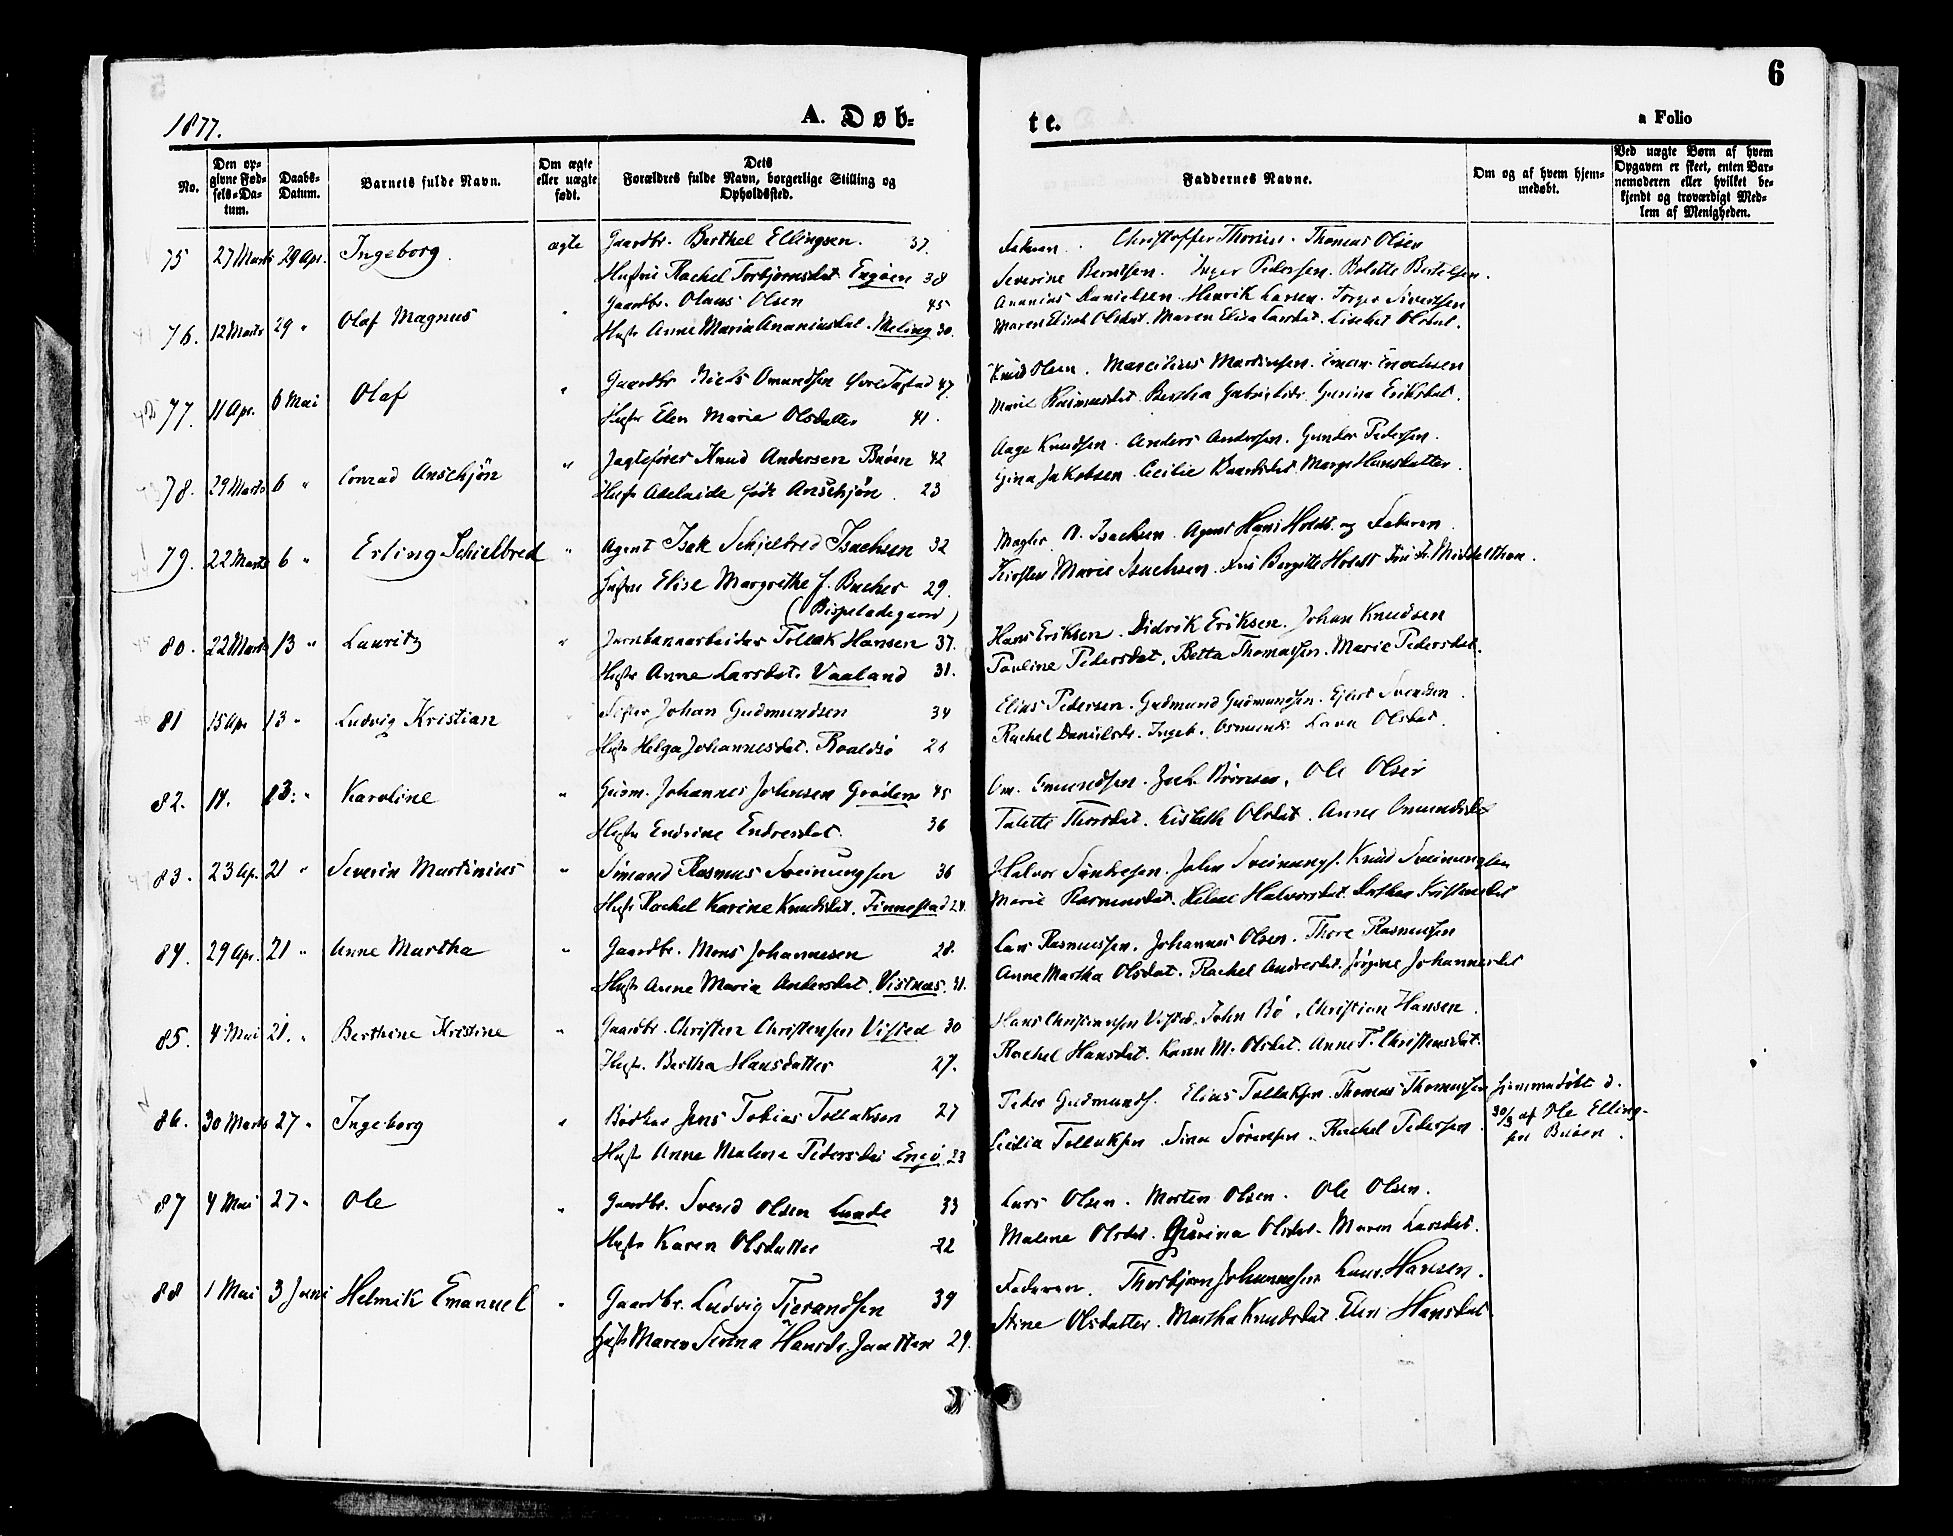 6
1877.
A. Døb=
te.
a Folio
No.
Den op=
givne Fød=
sels=Da=
tum.
Daabs=
Datum.
Barnets fulde Navn.
Om ægte
eller uægte
født.
Dets
Forældres fulde Navn, borgerlige Stilling og
Opholdssted.
Faddernes Navne.
Om og af hvem hjem=
medøbt.
Ved uægte Børn af hvem
Opgaven er skeet, enten Bar=
nemoderen eller hvilket be=
kjendt og troværdigt Med=
lem af Menigheden.
75 27 Marts 29 Apr. Ingeborg. ægte Gaardbr. Berthel Ellingsen. 37. Faderen. Christoffer Thorsen. Thomas Olsen
Hustru Rachel Torbjørnsdat Engøen 38 Severine Berntsen. Inger Pedersen. Bolette Bertelsen.
76. 12 Marts 29 " Olaf Magnus " Gaardbr. Olaus Olsen 45 Ananias Danielsen. Henrik Larsen. Torger Sivertsen
Hustr Anne Maria Ananiasdat. Meling 30. Maren Elisab Olsdat. Maren Elisa Larsdat. Lisebet Olsdat.
77. 11 Apr. 6 Mai Olaf " Gaardbr Niels Omundsen Øvre Tastad 47. Knud Olsen. Marcelius Martinsen. Enoksen
Hustr Elen Marie Olsdatter 41. Marie Rasmusdat. Bertha Gabrielsdr. Gurina Eriksdat.
78. 29 Marts 6 " Conrad Anschjøn " Jagtefører Knud Andersen Buøen 42 Aage Knudsen. Anders Andersen. Gunder Pedersen.
Hustr Adelaide født Anschjøn. 23 Gina Jakobsen. Cecilie Marge Hansdatter.
79. 22 Marts 6 " Erling Schielbred " Agent Isak Schjelbred Isachsen 32 Mægler Isachsen. Agent Hans Holdt. og Faderen.
Hustru Elise Margrethe f. Bucher 29. Kirsten Marie Isachsen. Fru Bergitte Holdt Fru Fr. Middelthon.
(Bispeladegaard)
80. 22 Marts 13 " Lauritz " Jernbanearbeider Tollak Hansen 37. Hans Eriksen. Didrik Eriksen. Johan Knudsen
Hustr Anne Larsdat. Vaaland 31. Pauline Pedersdat. Betta Thomassen. Marie Pedersdat.
81 15 Apr 13 " Ludvig Kristian " Johan Gudmundsen 34 Elias Pedersen. Gudmund Gudmundsen. Ejlert Svendsen.
Hustr Helga Johannesdat. Roaldsø 26 Rachel Danielsdr. Ingeb. Osmunds Lava Olsdat.
82. 14. 13. " Karoline " Gudm. Johannes Johnsen Grøden 45 Om. Omundsen. Ole Olsen
Hustr Endrine Endresdat. 36 Talette Thorsdat. Lisbeth Olsdat. Anne Omundsdat
83. 23 Ap. 21 " Severin Martinius " Sømand Rasmus Sveinungsen 36 Halvor Søndresen. John Sveinungs. Knud Sveinungsen
Hustr Rachel Karine Knudsdat. Finnestad 24. Marie Rasmusdat. Helene Halvorsdat.
84. 29 Apr. 21 " Anne Martha " Gaardbr. Mons Johannesen 28. Lars Rasmussen. Johannes Olsen. Thore Rasmusen
Hustr Anne Maria Andersdat. Vistnæs. 31. Anne Martha Olsdat. Rachel Andresdat. Jørgine Johannesdat
85. 4 Mai 21. " Berthine Kristine " Gaardbr. Christen Christensen Visted 30 Hans Christiansen Visted. John Bø. Christian Hansen.
Hustr. Bertha Hansdatter 27. Rachel Hansdat. Karen M. Olsdat. Anne T. Christensdat.
86. 30 Marts 27 " Ingeborg " Bødker Jens Tobias Tollaksen 27 Peder Gudmunds. Elias Tollaksen. Thomas Thomassen hjemmedøbt d.
Hustr Anne Malene Pedersdat Engø 23 Cecilia Tollaksen. Sina Sørensen. Rachel Pedersen. 30/3 af Ole Elling-
sen Buøen.
87 4 Mai 27 " Ole " Gaardbr. Svend Olsen Lunde 33 Lars Olsen. Morten Olsen. Ole Olsen.
Hustr Karen Olsdatter 22 Malene Olsdat. Gurina Olsdat. Maren Larsdat.
88 1 Mai 3 Juni Helmik Emanuel " Gaardbr. Ludvig Tjerandsen 39 Faderen. Thorbjørn Johannesen Lars Hansen.
Hustr Maren Serina Hansdr. Jaatten 29. Stine Olsdatter. Martha Knudsdat. Elen Hansdat.